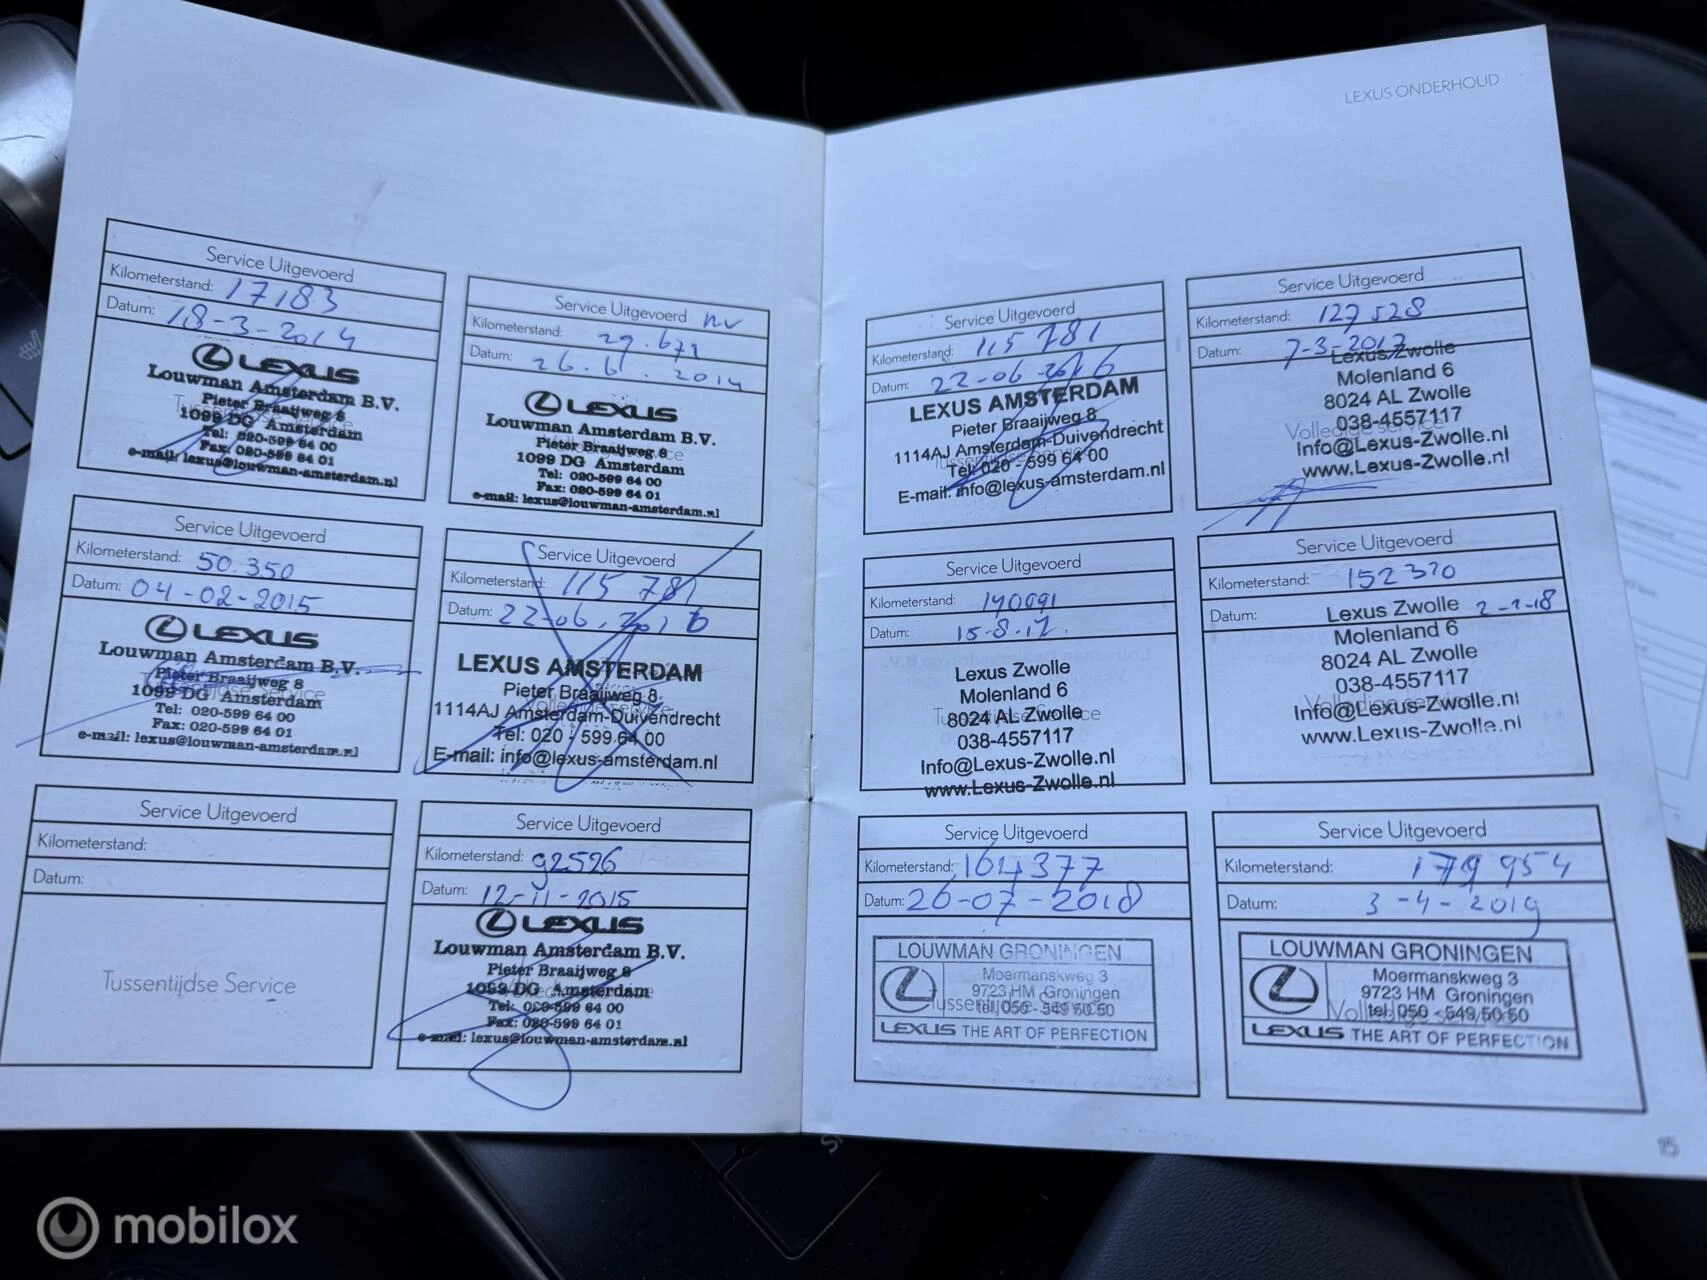 LEXUS ONDERHOUD
Service Uitgevoerd
Kilometerstand: 17183
Datum: 18-3-2014
LEXUS
Louwman Amsterdam B.V.
Pieter Braaijweg 8
1099 DG Amsterdam
Tel: 020-599 64 00
Fax: 020-599 64 01
e-mail: lexus@louwman-amsterdam.nl
Service Uitgevoerd nv
Kilometerstand: 29.671
Datum: 26.6.2014
LEXUS
Louwman Amsterdam B.V.
Pieter Braaijweg 8
1099 DG Amsterdam
Tel: 020-599 64 00
Fax: 020-599 64 01
e-mail: lexus@louwman-amsterdam.nl
Service Uitgevoerd
Kilometerstand: 50.350
Datum: 04-02-2015
LEXUS
Louwman Amsterdam B.V.
Pieter Braaijweg 8
Tussentijdse Service
1099 DG Amsterdam
Tel: 020-599 64 00
Fax: 020-599 64 01
e-mail: lexus@louwman-amsterdam.nl
Service Uitgevoerd
Kilometerstand: 115 781
Datum: 22-06.2016
LEXUS AMSTERDAM
Pieter Braaijweg 8
Volledige service
1114AJ Amsterdam-Duivendrecht
Tel: 020 - 599 64 00
E-mail: info@lexus-amsterdam.nl
Service Uitgevoerd
Kilometerstand:
Datum:
Tussentijdse Service
Service Uitgevoerd
Kilometerstand: 92526
Datum: 12-11-2015
LEXUS
Louwman Amsterdam B.V.
Pieter Braaijweg 8
1099 DG Amsterdam
Tel: 020-599 64 00
Fax: 020-599 64 01
e-mail: lexus@louwman-amsterdam.nl
Service Uitgevoerd
Kilometerstand: 115 781
Datum: 22-06-2016
LEXUS AMSTERDAM
Pieter Braaijweg 8
1114AJ Amsterdam-Duivendrecht
Tel: 020 - 599 64 00
E-mail: info@lexus-amsterdam.nl
Service Uitgevoerd
Kilometerstand: 127528
Datum: 7-3-2017
Lexus Zwolle
Molenland 6
8024 AL Zwolle
038-4557117
Volledige service
Info@Lexus-Zwolle.nl
www.Lexus-Zwolle.nl
Service Uitgevoerd
Kilometerstand: 140091
Datum: 15-8-17.
Lexus Zwolle
Molenland 6
8024 AL Zwolle
Tussentijdse Service
038-4557117
Info@Lexus-Zwolle.nl
www.Lexus-Zwolle.nl
Service Uitgevoerd
Kilometerstand: 152320
Datum: 2-2-18
Lexus Zwolle
Molenland 6
8024 AL Zwolle
038-4557117
Volledige service
Info@Lexus-Zwolle.nl
www.Lexus-Zwolle.nl
Service Uitgevoerd
Kilometerstand: 164377
Datum: 26-07-2018
LOUWMAN GRONINGEN
Moermanskweg 3
9723 HM Groningen
Tussentijdse Service
tel. 050 - 549 50 50
LEXUS THE ART OF PERFECTION
Service Uitgevoerd
Kilometerstand: 179954
Datum: 3-4-2019
LOUWMAN GRONINGEN
Moermanskweg 3
9723 HM Groningen
Volledige service
tel. 050 - 549 50 50
LEXUS THE ART OF PERFECTION
15
mobilox